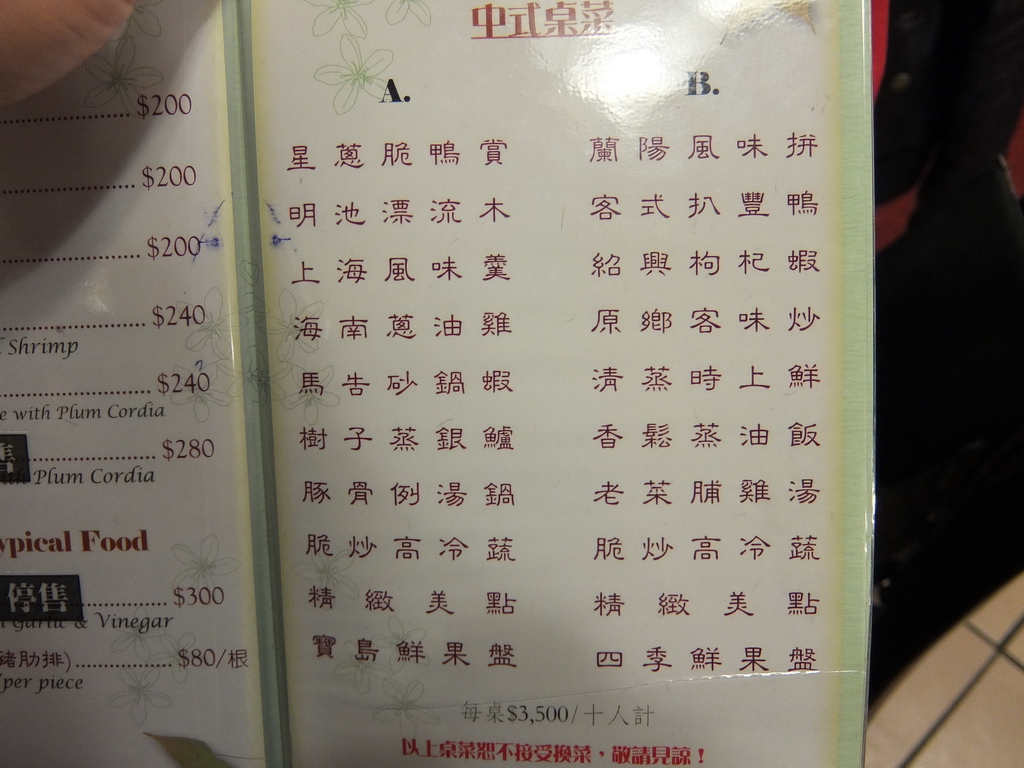 $200
$200
$200
$240
Shrimp
$240
e with Plum Cordia
售
$280
Plum Cordia
ypical Food
停售
$300
Garlic & Vinegar
豬肋排)
$80/根
/per piece
中式桌菜
A.
星蔥脆鴨賞
明池漂流木
上海風味羹
海南蔥油雞
馬告砂鍋蝦
樹子蒸銀鱸
豚骨例湯鍋
脆炒高冷蔬
精緻美點
寶島鮮果盤
B.
蘭陽風味拼
客式扒豐鴨
紹興枸杞蝦
原鄉客味炒
清蒸時上鮮
香鬆蒸油飯
老菜脯雞湯
脆炒高冷蔬
精緻美點
四季鮮果盤
每桌$3,500/十人計
以上桌菜恕不接受換菜，敬請見諒！